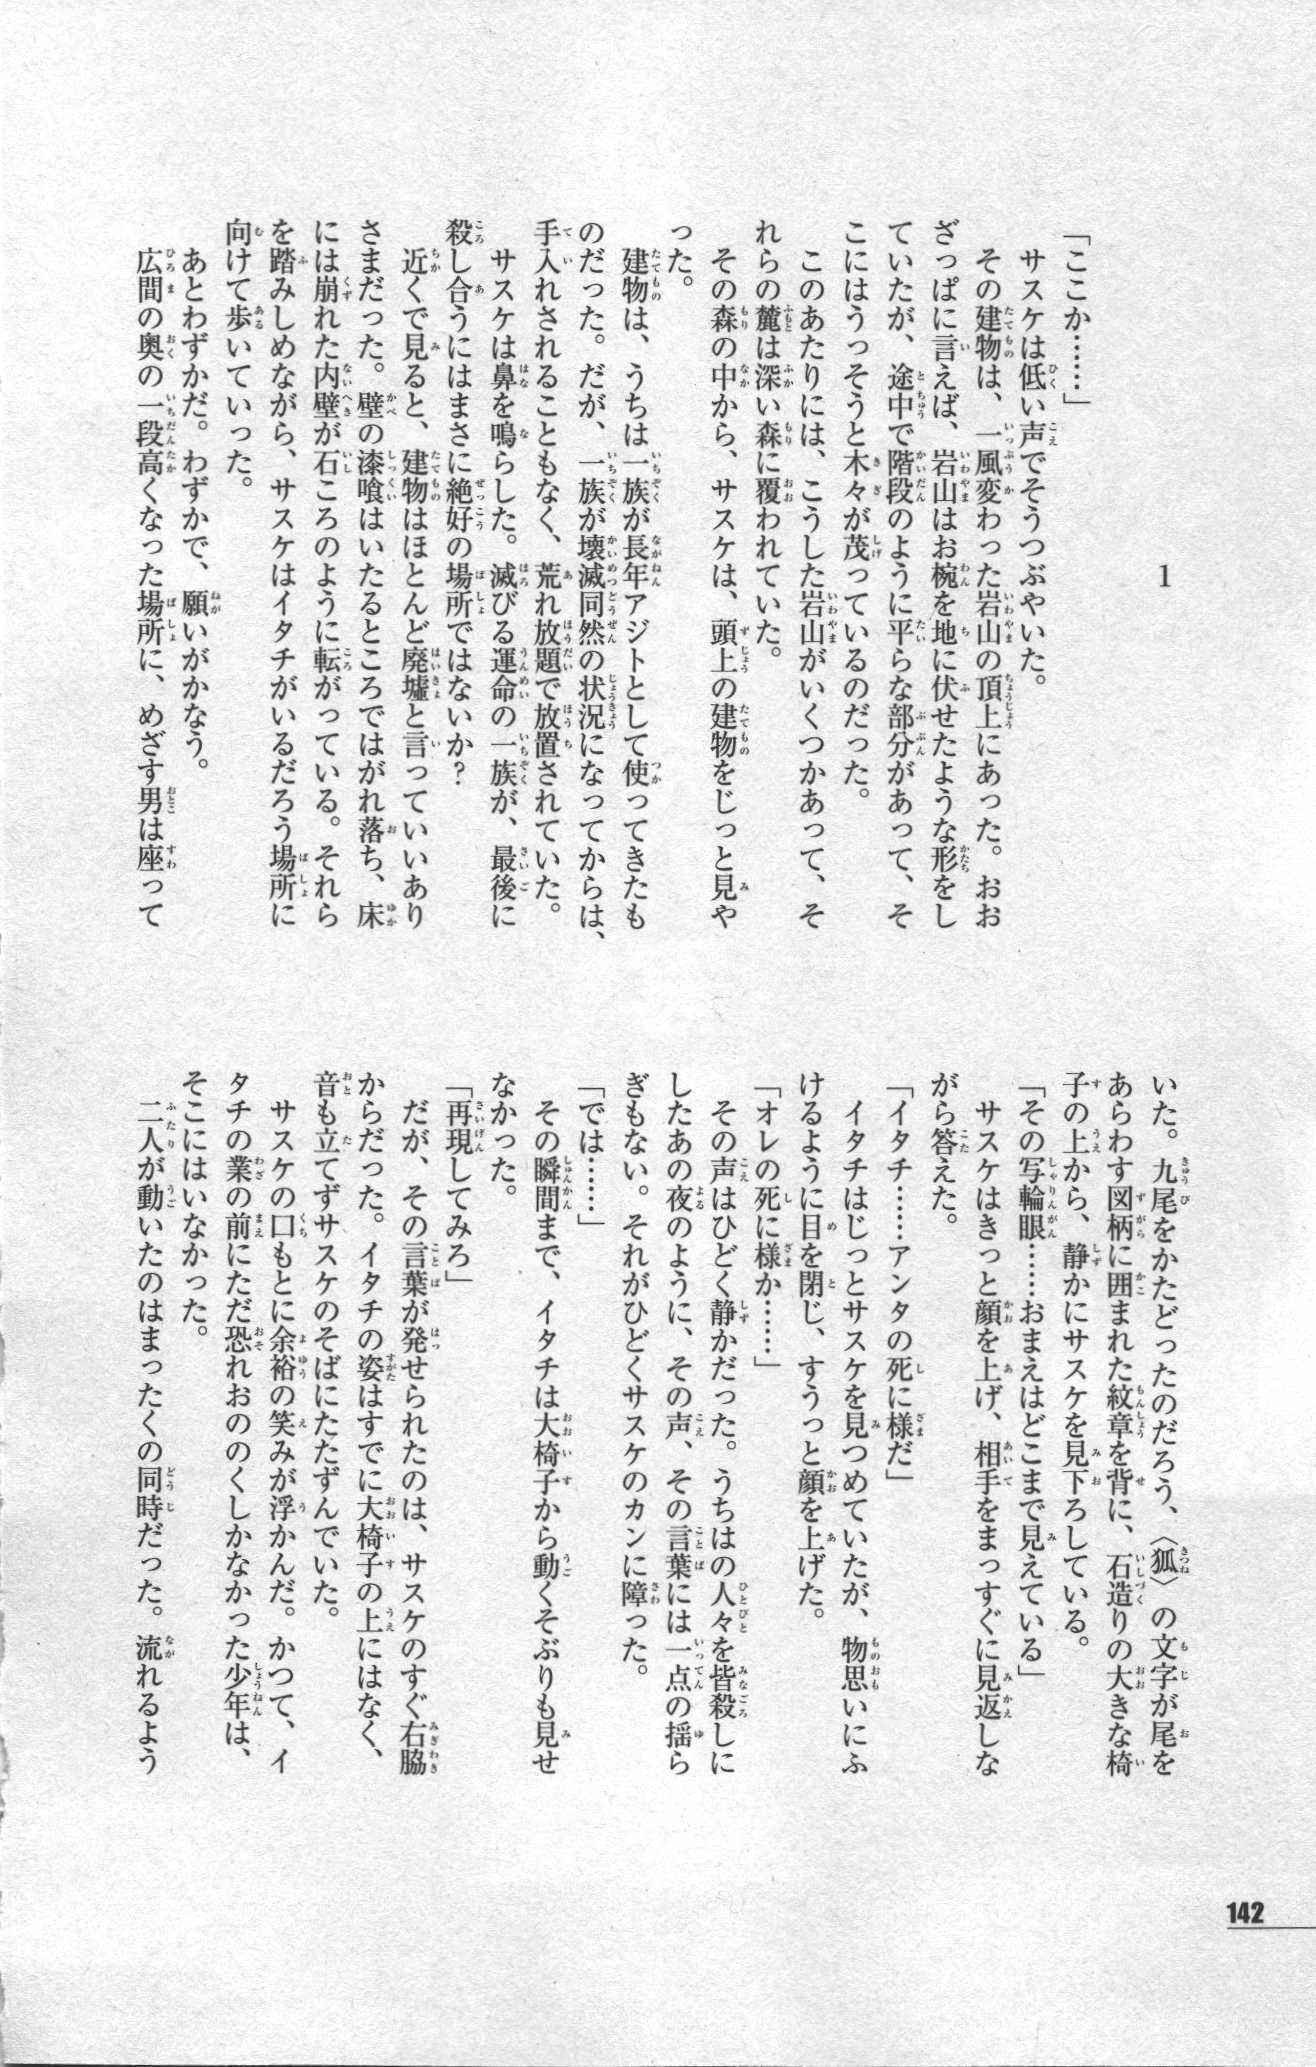 1
「ここか……」
サスケは低い声でそうつぶやいた。
その建物は、一風変わった岩山の頂上にあった。おお
ざっぱに言えば、岩山はお椀を地に伏せたような形をし
ていたが、途中で階段のように平らな部分があって、そ
こにはうっそうと木々が茂っているのだった。
このあたりには、こうした岩山がいくつかあって、そ
れらの麓は深い森に覆われていた。
その森の中から、サスケは、頭上の建物をじっと見や
った。
建物は、うちは一族が長年アジトとして使ってきたも
のだった。だが、一族が壊滅同然の状況になってからは、
手入れされることもなく、荒れ放題で放置されていた。
サスケは鼻を鳴らした。滅びる運命の一族が、最後に
殺し合うにはまさに絶好の場所ではないか？
近くで見ると、建物はほとんど廃墟と言っていいあり
さまだった。壁の漆喰はいたるところではがれ落ち、床
には崩れた内壁が石ころのように転がっている。それら
を踏みしめながら、サスケはイタチがいるだろう場所に
向けて歩いていった。
あとわずかだ。わずかで、願いがかなう。
広間の奥の一段高くなった場所に、めざす男は座って
いた。九尾をかたどったのだろう、〈狐〉の文字が尾を
あらわす図柄に囲まれた紋章を背に、石造りの大きな椅
子の上から、静かにサスケを見下ろしている。
「その写輪眼……おまえはどこまで見えている」
サスケはきっと顔を上げ、相手をまっすぐに見返しな
がら答えた。
「イタチ……アンタの死に様だ」
イタチはじっとサスケを見つめていたが、物思いにふ
けるように目を閉じ、すうっと顔を上げた。
「オレの死に様か……」
その声はひどく静かだった。うちはの人々を皆殺しに
したあの夜のように、その声、その言葉には一点の揺ら
ぎもない。それがひどくサスケのカンに障った。
「では……」
その瞬間まで、イタチは大椅子から動くそぶりも見せ
なかった。
「再現してみろ」
だが、その言葉が発せられたのは、サスケのすぐ右脇
からだった。イタチの姿はすでに大椅子の上にはなく、
音も立てずサスケのそばにたたずんでいた。
サスケの口もとに余裕の笑みが浮かんだ。かつて、イ
タチの業の前にただ恐れおののくしかなかった少年は、
そこにはいなかった。
二人が動いたのはまったくの同時だった。流れるよう
142